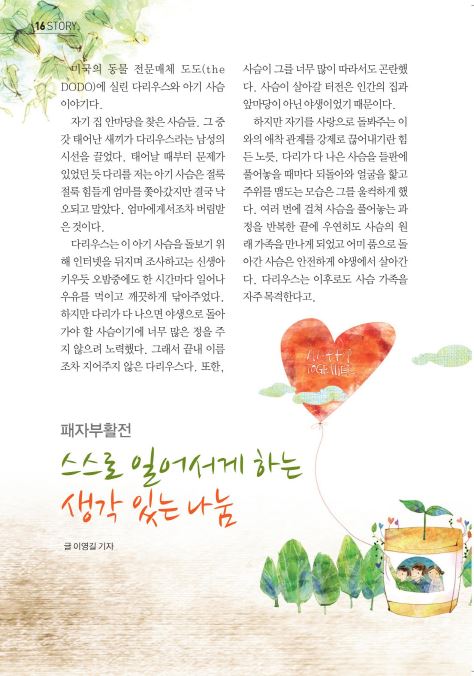 16 STORY
미국의 동물 전문매체 도도(the
DODO)에 실린 다리우스와 아기 사슴
이야기다.
자기 집 안마당을 찾은 사슴들. 그 중
갓 태어난 새끼가 다리우스라는 남성의
시선을 끌었다. 태어날 때부터 문제가
있었던 듯 다리를 저는 아기 사슴은 절룩
절룩 힘들게 엄마를 쫓아갔지만 결국 낙
오되고 말았다. 엄마에게서조차 버림받
은 것이다.
다리우스는 이 아기 사슴을 돌보기 위
해 인터넷을 뒤지며 조사하고는 신생아
키우듯 오밤중에도 한 시간마다 일어나
우유를 먹이고 깨끗하게 닦아주었다.
하지만 다리가 다 나으면 야생으로 돌아
가야 할 사슴이기에 너무 많은 정을 주
지 않으려 노력했다. 그래서 끝내 이름
조차 지어주지 않은 다리우스다. 또한,
사슴이 그를 너무 많이 따라서도 곤란했
다. 사슴이 살아갈 터전은 인간의 집과
앞마당이 아닌 야생이었기 때문이다.
하지만 자기를 사랑으로 돌봐주는 이
와의 애착 관계를 강제로 끊어내기란 힘
든 노릇. 다리가 다 나은 사슴을 들판에
풀어놓을 때마다 되돌아와 얼굴을 핥고
주위를 맴도는 모습은 그를 울컥하게 했
다. 여러 번에 걸쳐 사슴을 풀어놓는 과
정을 반복한 끝에 우연히도 사슴의 원
래 가족을 만나게 되었고 어미 품으로 돌
아간 사슴은 안전하게 야생에서 살아간
다. 다리우스는 이후로도 사슴 가족을
자주 목격한다고.
TOGETHER
패자부활전
스스로 일어서게 하는
생각 있는 나눔
글 이영길 기자